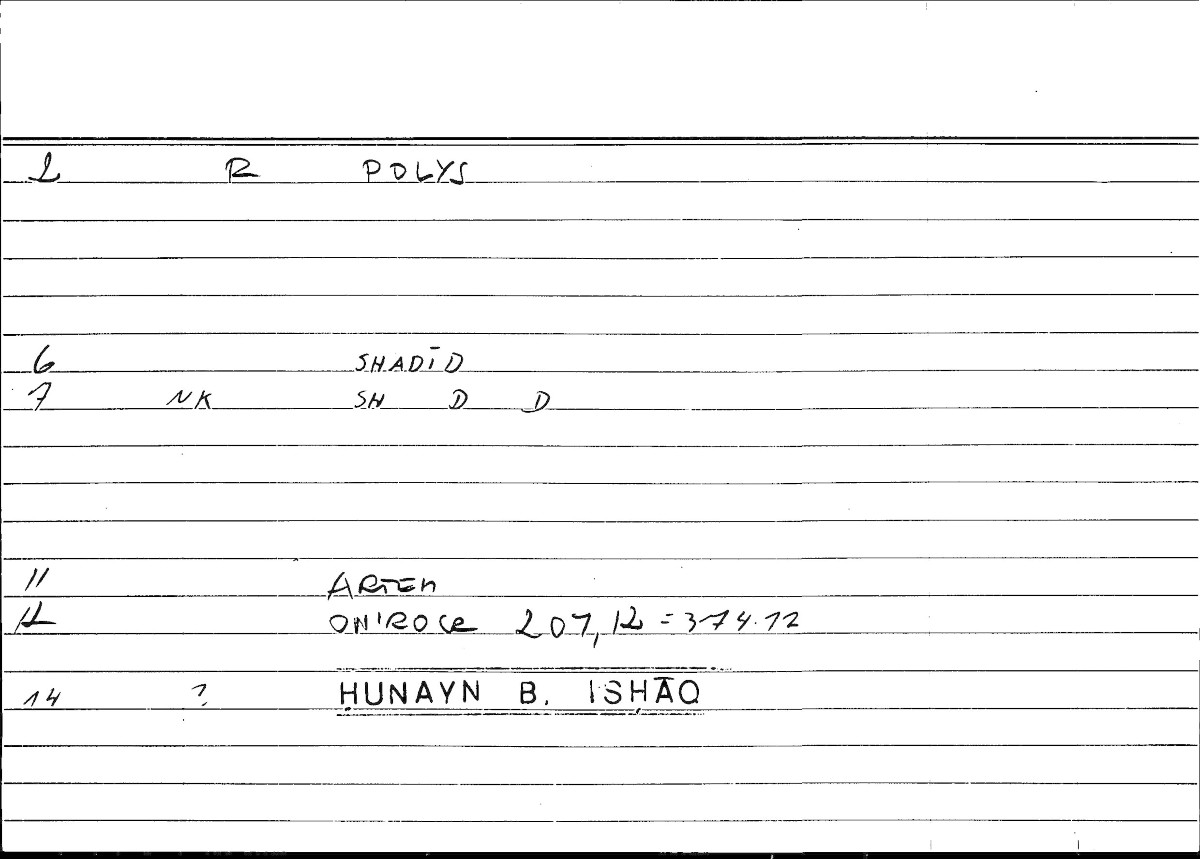 2 R POLYS
6 SHADĪD
7 NK SH D D
11 ARTEM
12 ONIROCR 207,12 = 374.12
14 ? ḤUNAYN B. ISḤĀQ